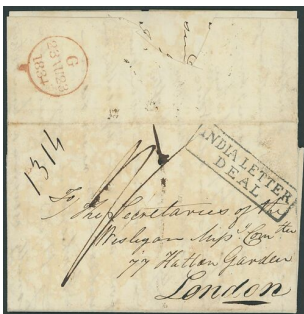 G
1314
INDIA LETTER
DEAL
To The Secretaries of the
Wesleyan Miss.y Com.tee
77 Hatton Garden
London